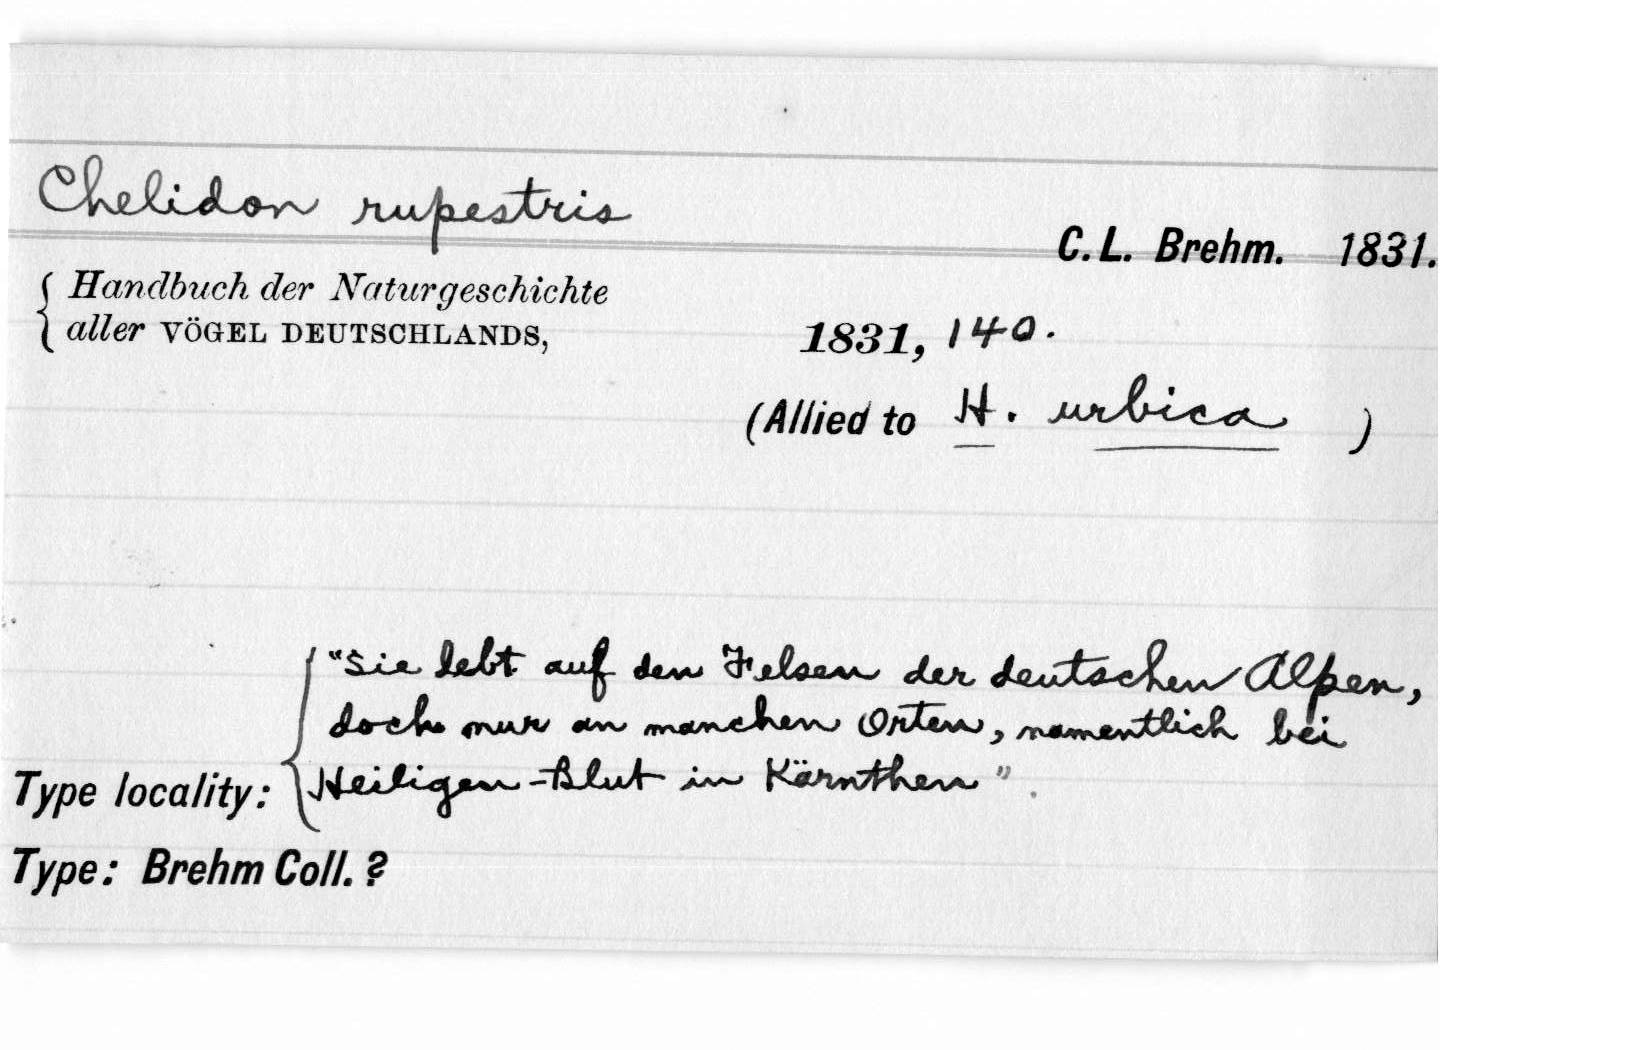 Chelidon rupestris
C.L. Brehm. 1831.
Handbuch der Naturgeschichte
aller VÖGEL DEUTSCHLANDS,
1831, 140.
(Allied to H. urbica )
"Sie lebt auf den Felsen der deutschen Alpen,
doch nur an manchen Orten, namentlich bei
Type locality: Heiligen-Blut in Kärnthen".
Type: Brehm Coll. ?